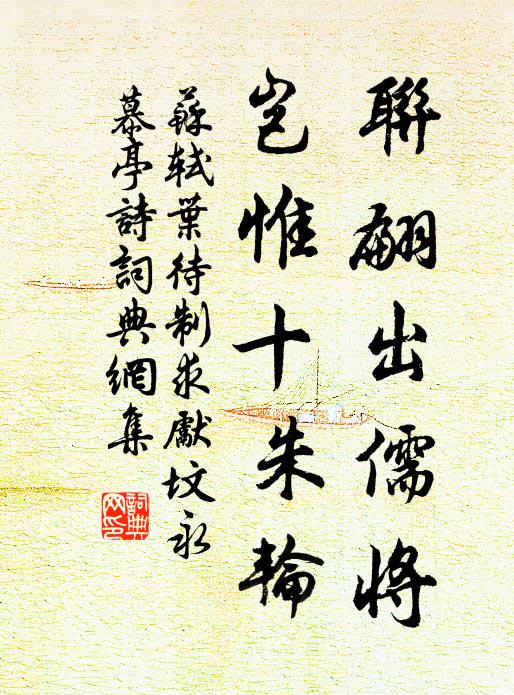 聯翩出儒將
豈惟十朱輪
蘇軾葉待制求獻墳永
慕亭詩詞典網集
詞典網印